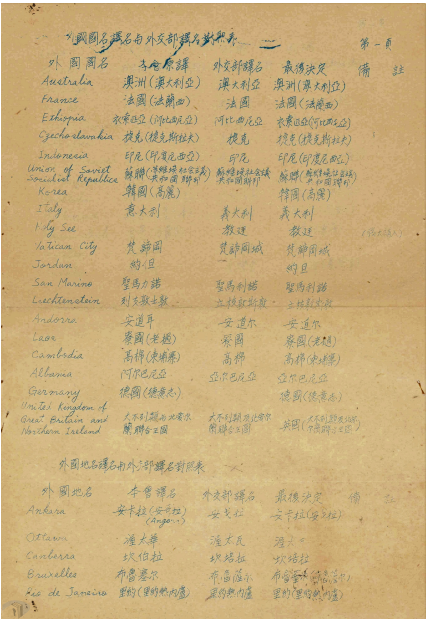 外國國名譯名與外交部譯名對照表 第一頁
外國國名 本會原譯 外交部譯名 最後決定 備註
Australia 澳洲(澳大利亞) 澳大利亞 澳洲(意大利亞)
France 法國(法蘭西) 法國 法國(法蘭西)
Ethiopia 衣索匹亞(阿比西尼亞) 阿比西尼亞
Czechoslovakia 捷克(捷克斯拉夫) 捷克 捷克(捷克斯拉夫)
Indonesia 印尼(印度尼西亞) 印尼 印尼(印度尼西亞)
Union of Soviet Socialist Republics 蘇聯(蘇維埃社會主義共和國聯邦) 蘇維埃社會主義共和國聯邦 蘇聯
Korea 韓國(高麗) 韓國(高麗)
Italy 意大利 義大利 義大利
Holy See 教廷 教廷
Vatican City 梵諦岡 梵諦岡城 梵諦岡城
Jordan 約旦 約旦
San Marino 聖馬力諾 聖馬利諾 聖馬利諾
Liechtenstein
Andorra 安道耳 安道尔 安道尔
Laos 寮國(老撾) 寮國 寮國(老撾)
Cambodia 高棉(柬埔寨) 高棉 高棉(柬埔寨)
Albania 阿尔巴尼亞 亞尔巴尼亞 亞尔巴尼亞
Germany 德國(德意志) 德國(德意志)
United Kingdom of Great Britain and Northern Ireland 大不列顛與北愛尔蘭聯合王國 大不列顛及北愛尔蘭聯合王國 英國
外國地名譯名與外交部譯名對照表
外國地名 本會譯名 外交部譯名 最後決定 備註
Ankara 安卡拉
Ottawa 渥太華 渥太瓦
Canberra 坎伯拉 坎培拉 坎培拉
Bruxelles 布魯塞尔
Rio de Janeiro 里約(里約熱內盧) 里約熱內盧 里約(里約熱內盧)